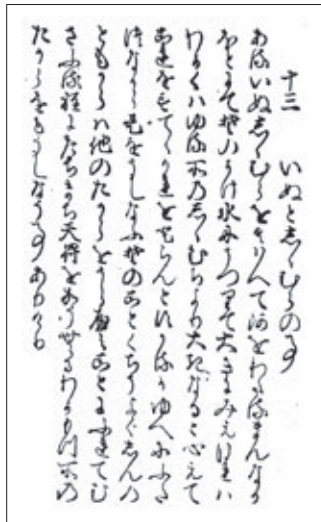 十三　いぬとしゝむらの事
あるいぬしゝむらをくはへて河をわたるまんなか
ほとにてそのかけ水にうつりて大きにみえけれは
わかくはゆる所のしゝむらより大きなると心えて
これをすてゝかれをとらんとすかるかゆへにふた
つなから是をうしなふそのことくちうよくしんの
ともからは他のたからをうらやみことにふれてむ
さふる程にたちまち天罰をかうむるわかもつ所の
たからをもうしなう事ありけり